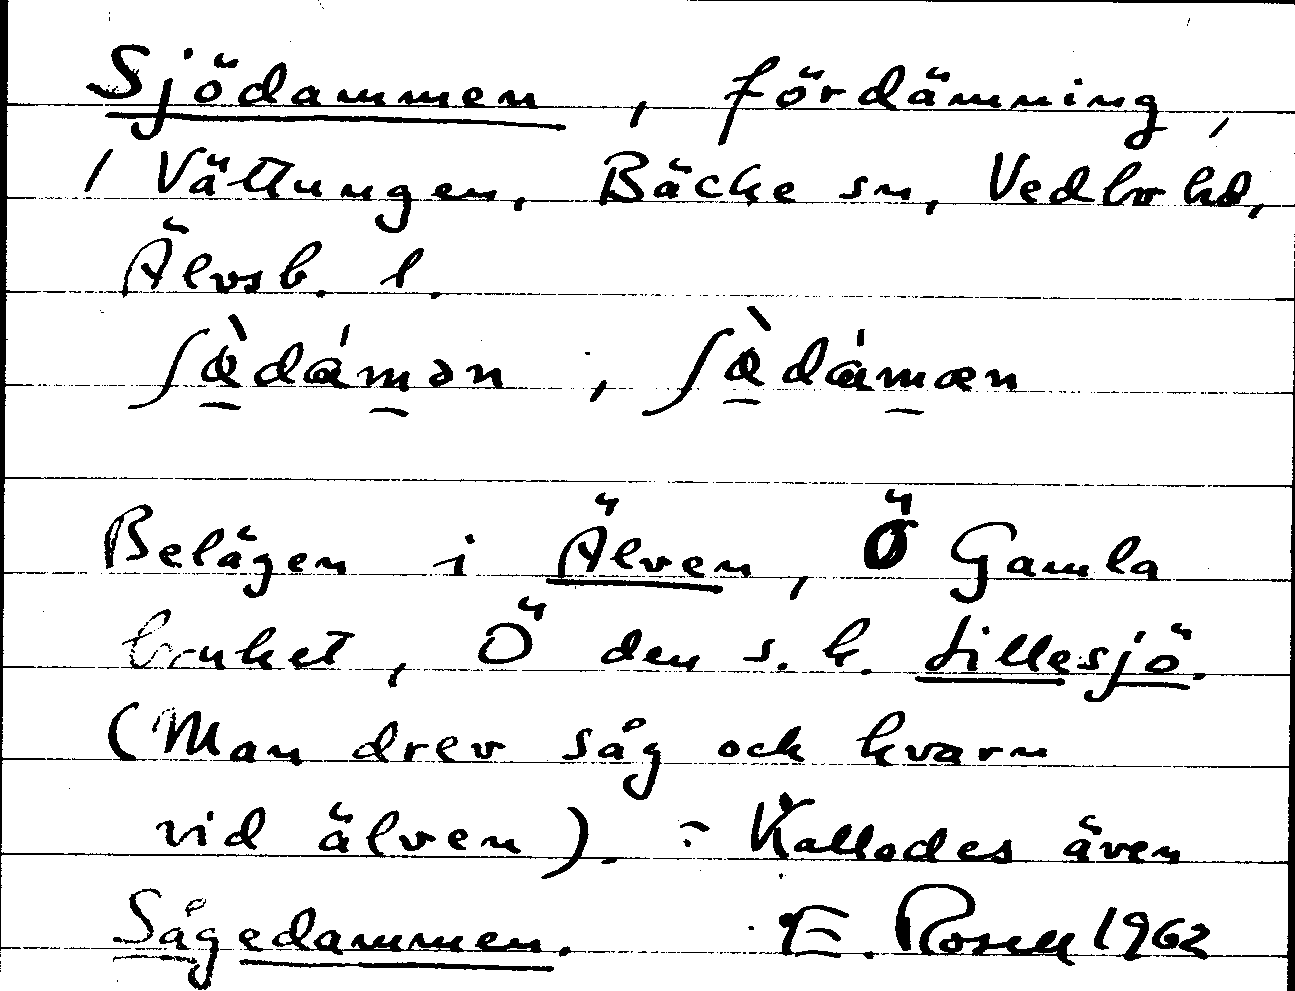 Sjödammen, fördämning,
/ Vättungen, Bäcke sn, Vedbo hd,
Älvsb. l.
ʃæ̀dámən, ʃæ̀dámæn
Belägen i Älven, Ö Gamla
bruket, Ö den s.k. Lillesjö.
(Man drev såg och kvarn
vid älven). - Kallades även
Sågedammen. E. Rosell 1962